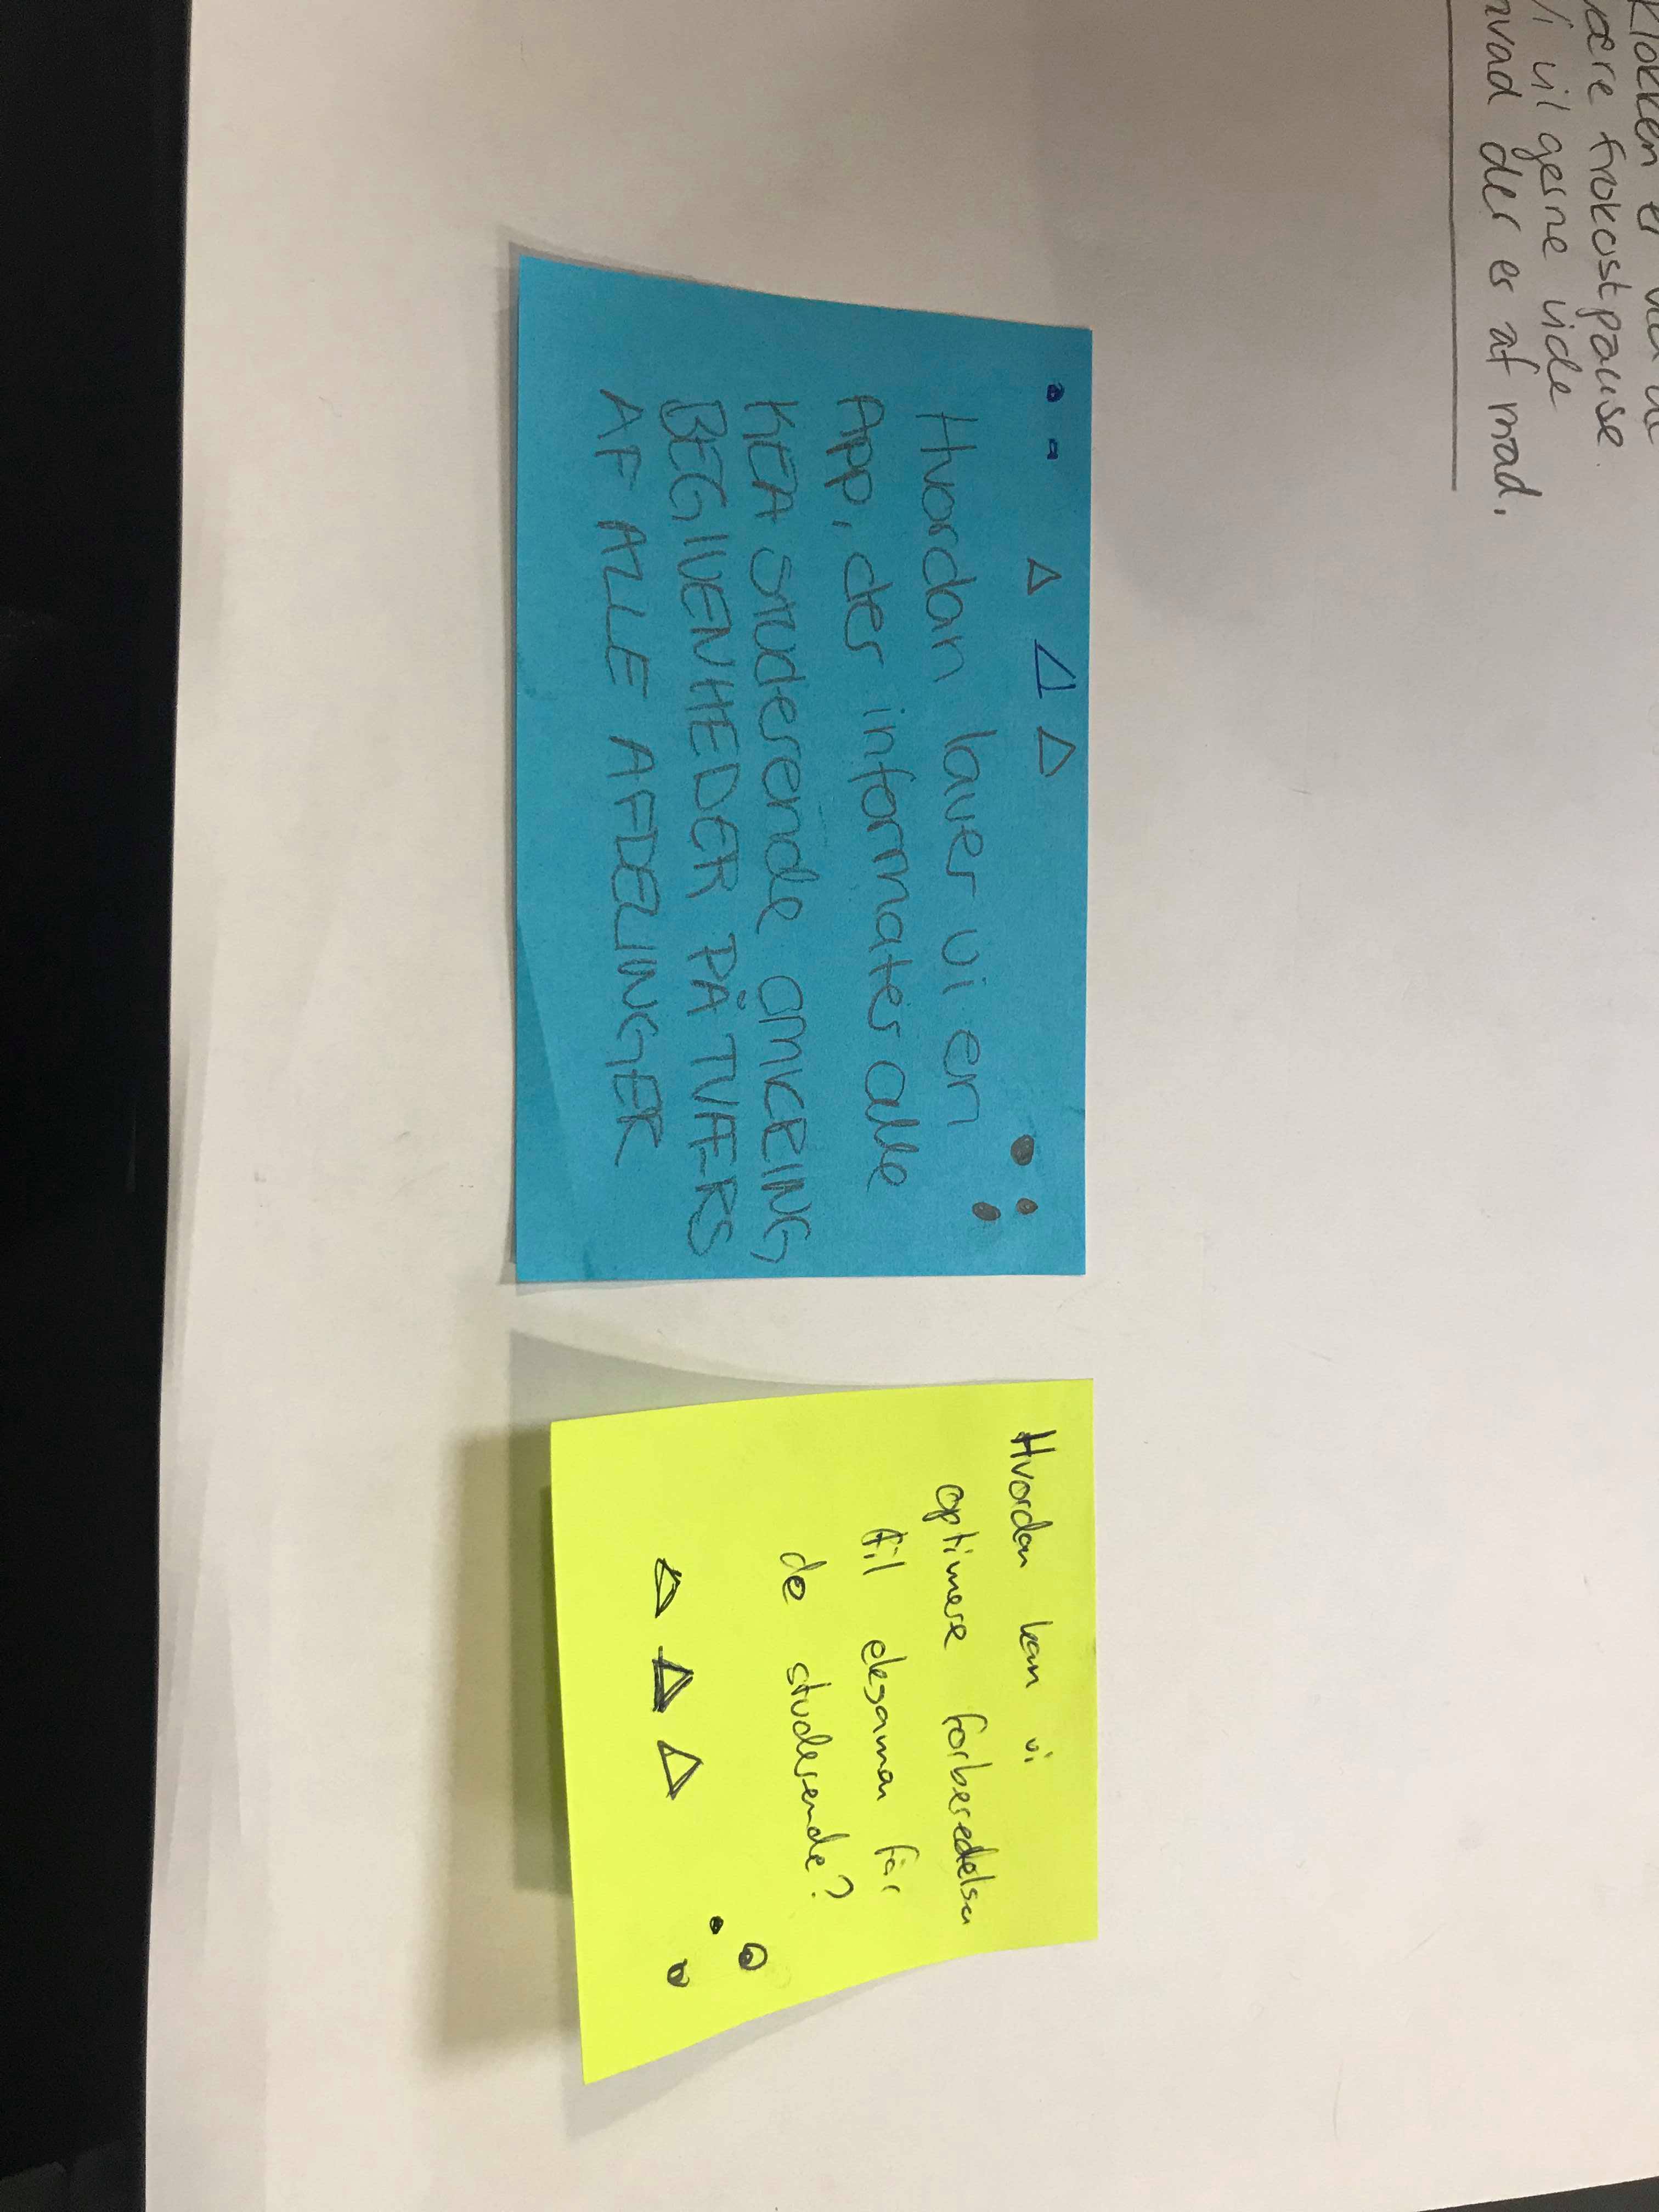 Klokken er
være frokostpause.
Vi vil gerne vide
hvad der er af mad.
Hvordan laver vi en
App, der informater alle
KEA studerende OMKRING
BEGIVENHEDER PÅ TVÆRS
AF ALLE AFDELINGER
Hvordan kan vi
optimere forberedelsen
til eksamen for
de studerende?